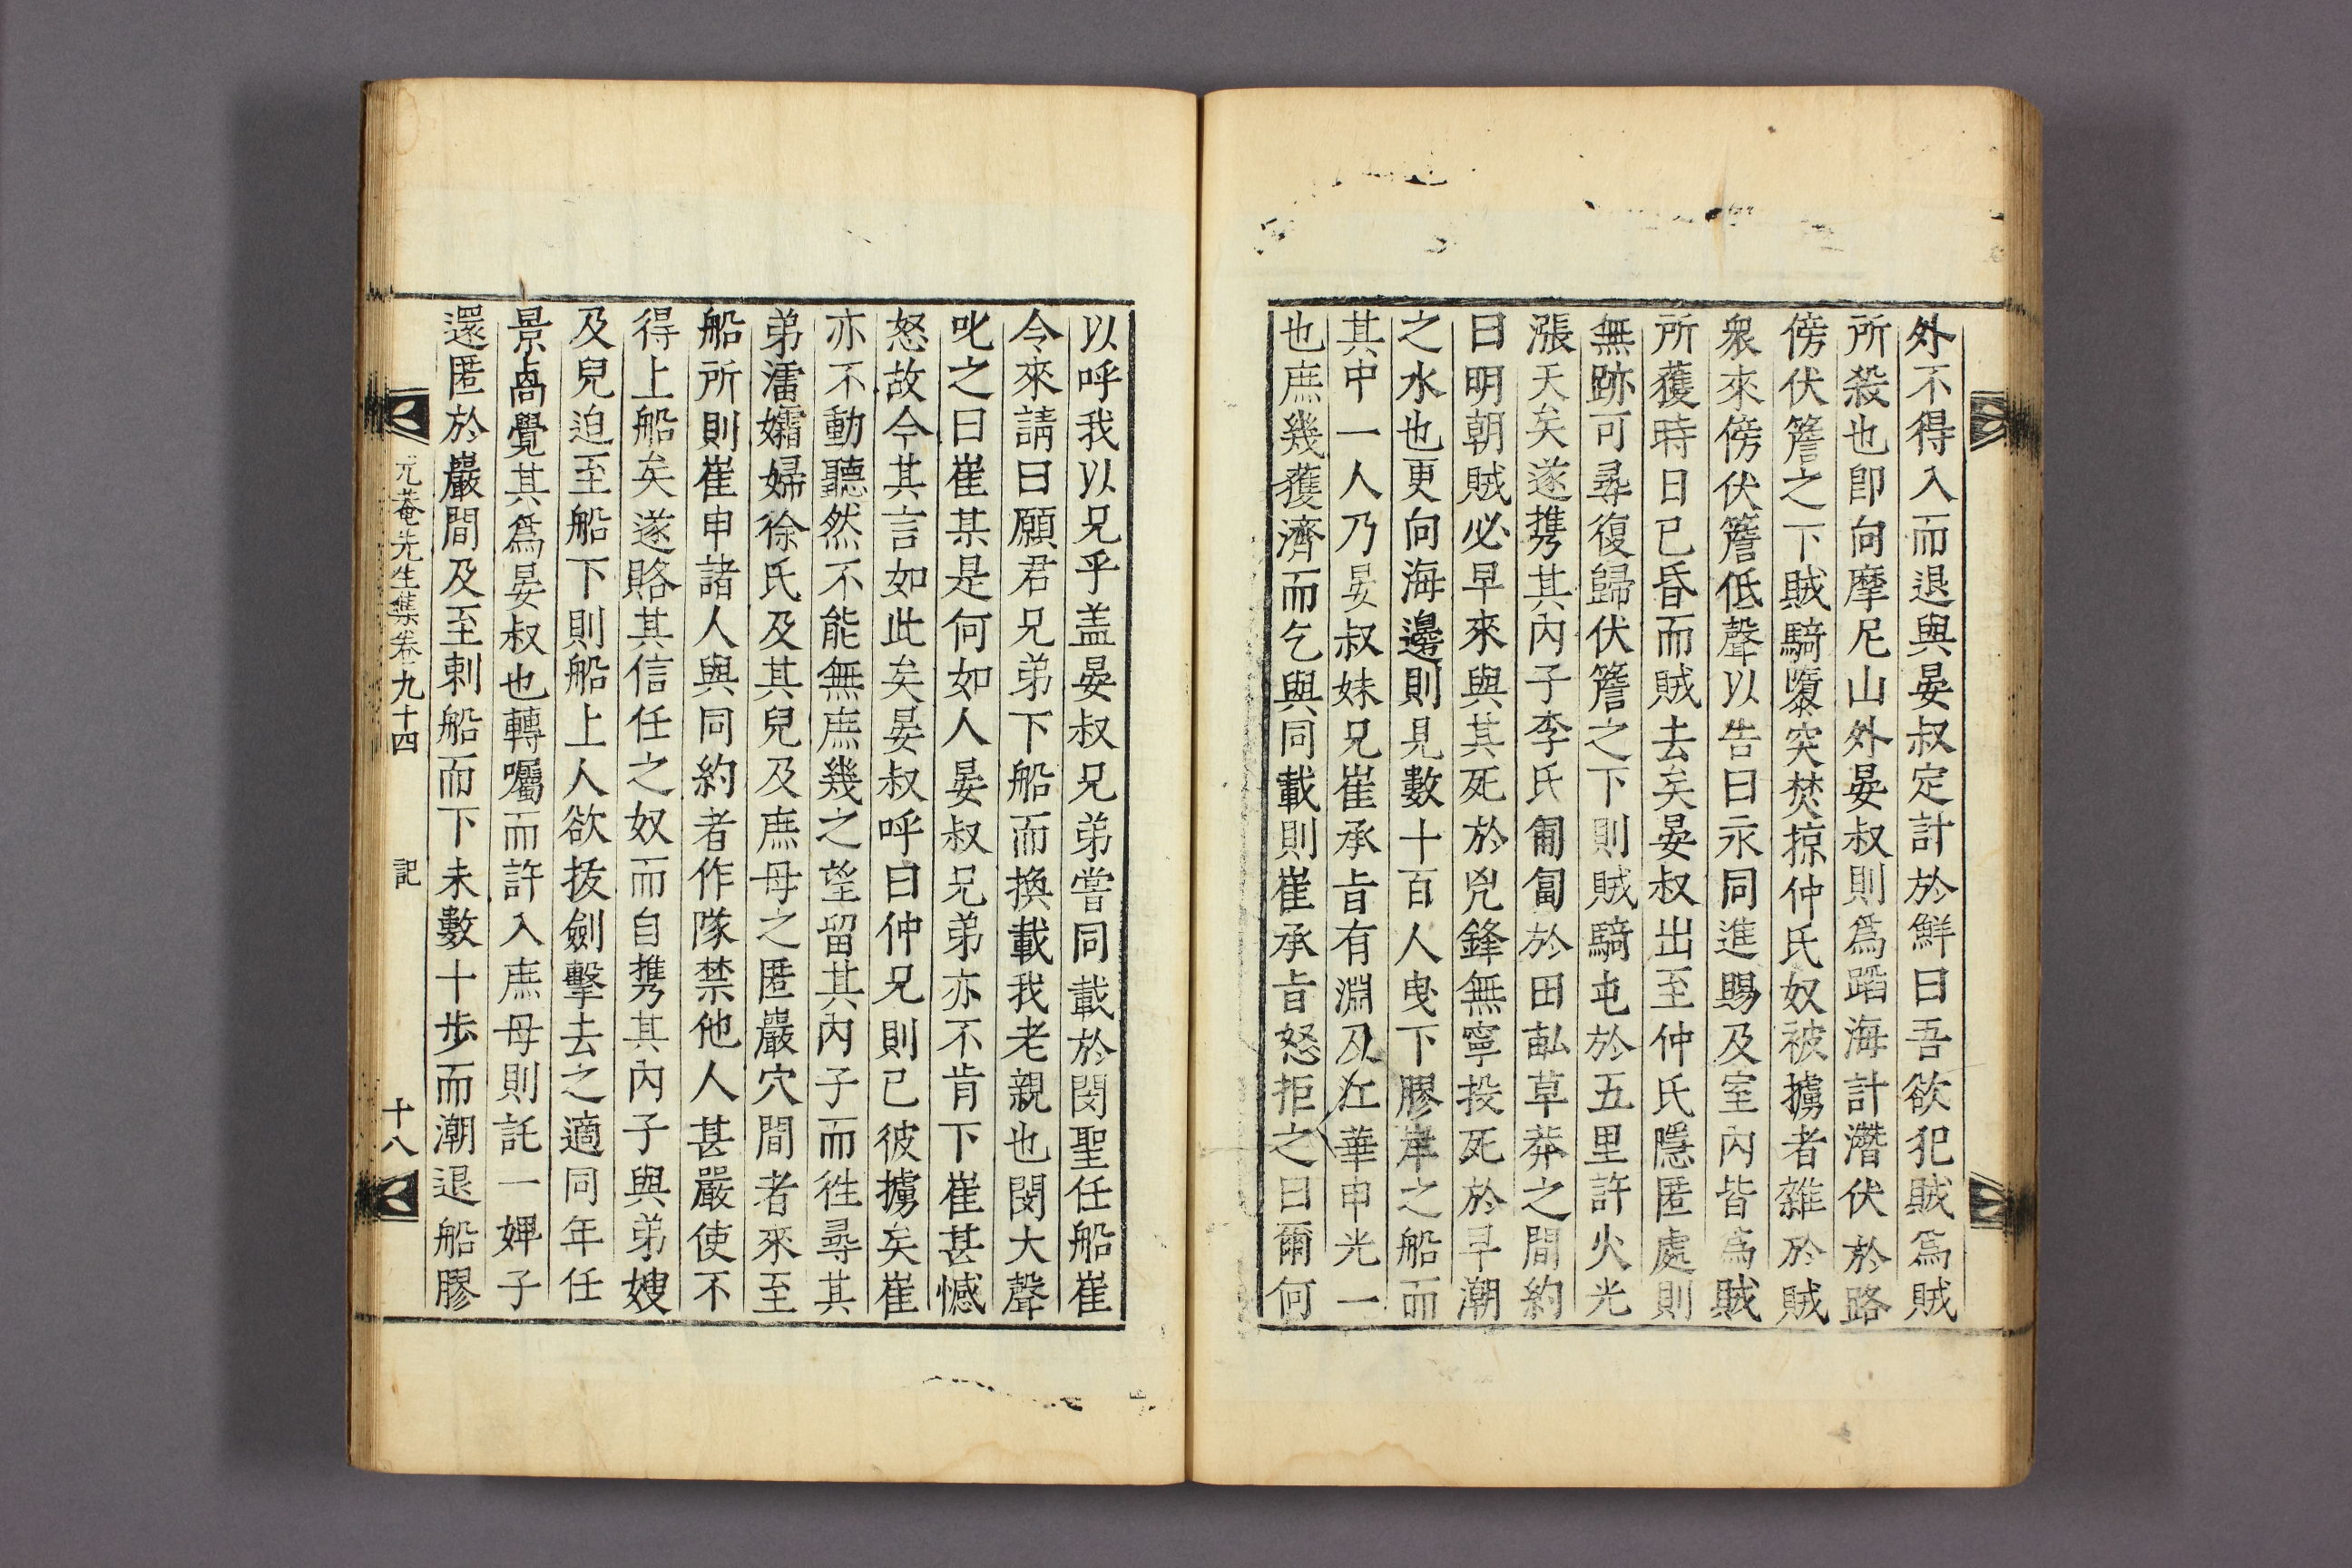 外不得入而退與晏叔定計於鮮曰吾欲犯賊爲賊
所殺也卽向摩尼山外晏叔則爲蹈海計潛伏於路
傍伏簷之下賊騎隳突焚掠仲氏奴被擄者雜於賊
衆來傍伏簷低聲以告曰永同進賜及室內皆爲賊
所獲時日已昏而賊去矣晏叔出至仲氏隱匿處則
無跡可尋復歸伏簷之下則賊騎屯於五里許火光
漲天矣遂携其內子李氏匍匐於田畝草莽之間約
曰明朝賊必早來與其死於兇鋒無寧投死於早潮
之水也更向海邊則見數十百人曳下膠岸之船而
其中一人乃晏叔妹兄崔承旨有淵及江華申光一
也庶幾獲濟而乞與同載則崔承旨怒拒之曰爾何
以呼我以兄乎盖晏叔兄弟嘗同載於閔聖任船崔
令來請曰願君兄弟下船而換載我老親也閔大聲
叱之曰崔某是何如人晏叔兄弟亦不肯下崔甚憾
怒故今其言如此矣晏叔呼曰仲兄則已彼擄矣崔
亦不動聽然不能無庶幾之望留其內子而徃尋其
弟濡孀婦徐氏及其兒及庶母之匿巖穴間者來至
船所則崔申諸人與同約者作隊禁他人甚嚴使不
得上船矣遂賂其信任之奴而自携其內子與弟嫂
及兒迫至船下則船上人欲拔劍擊去之適同年任
景卨覺其爲晏叔也轉囑而許入庶母則託一婢子
還匿於巖間及至刺船而下未數十步而潮退船膠
尤菴先生集卷九十四 記 十八